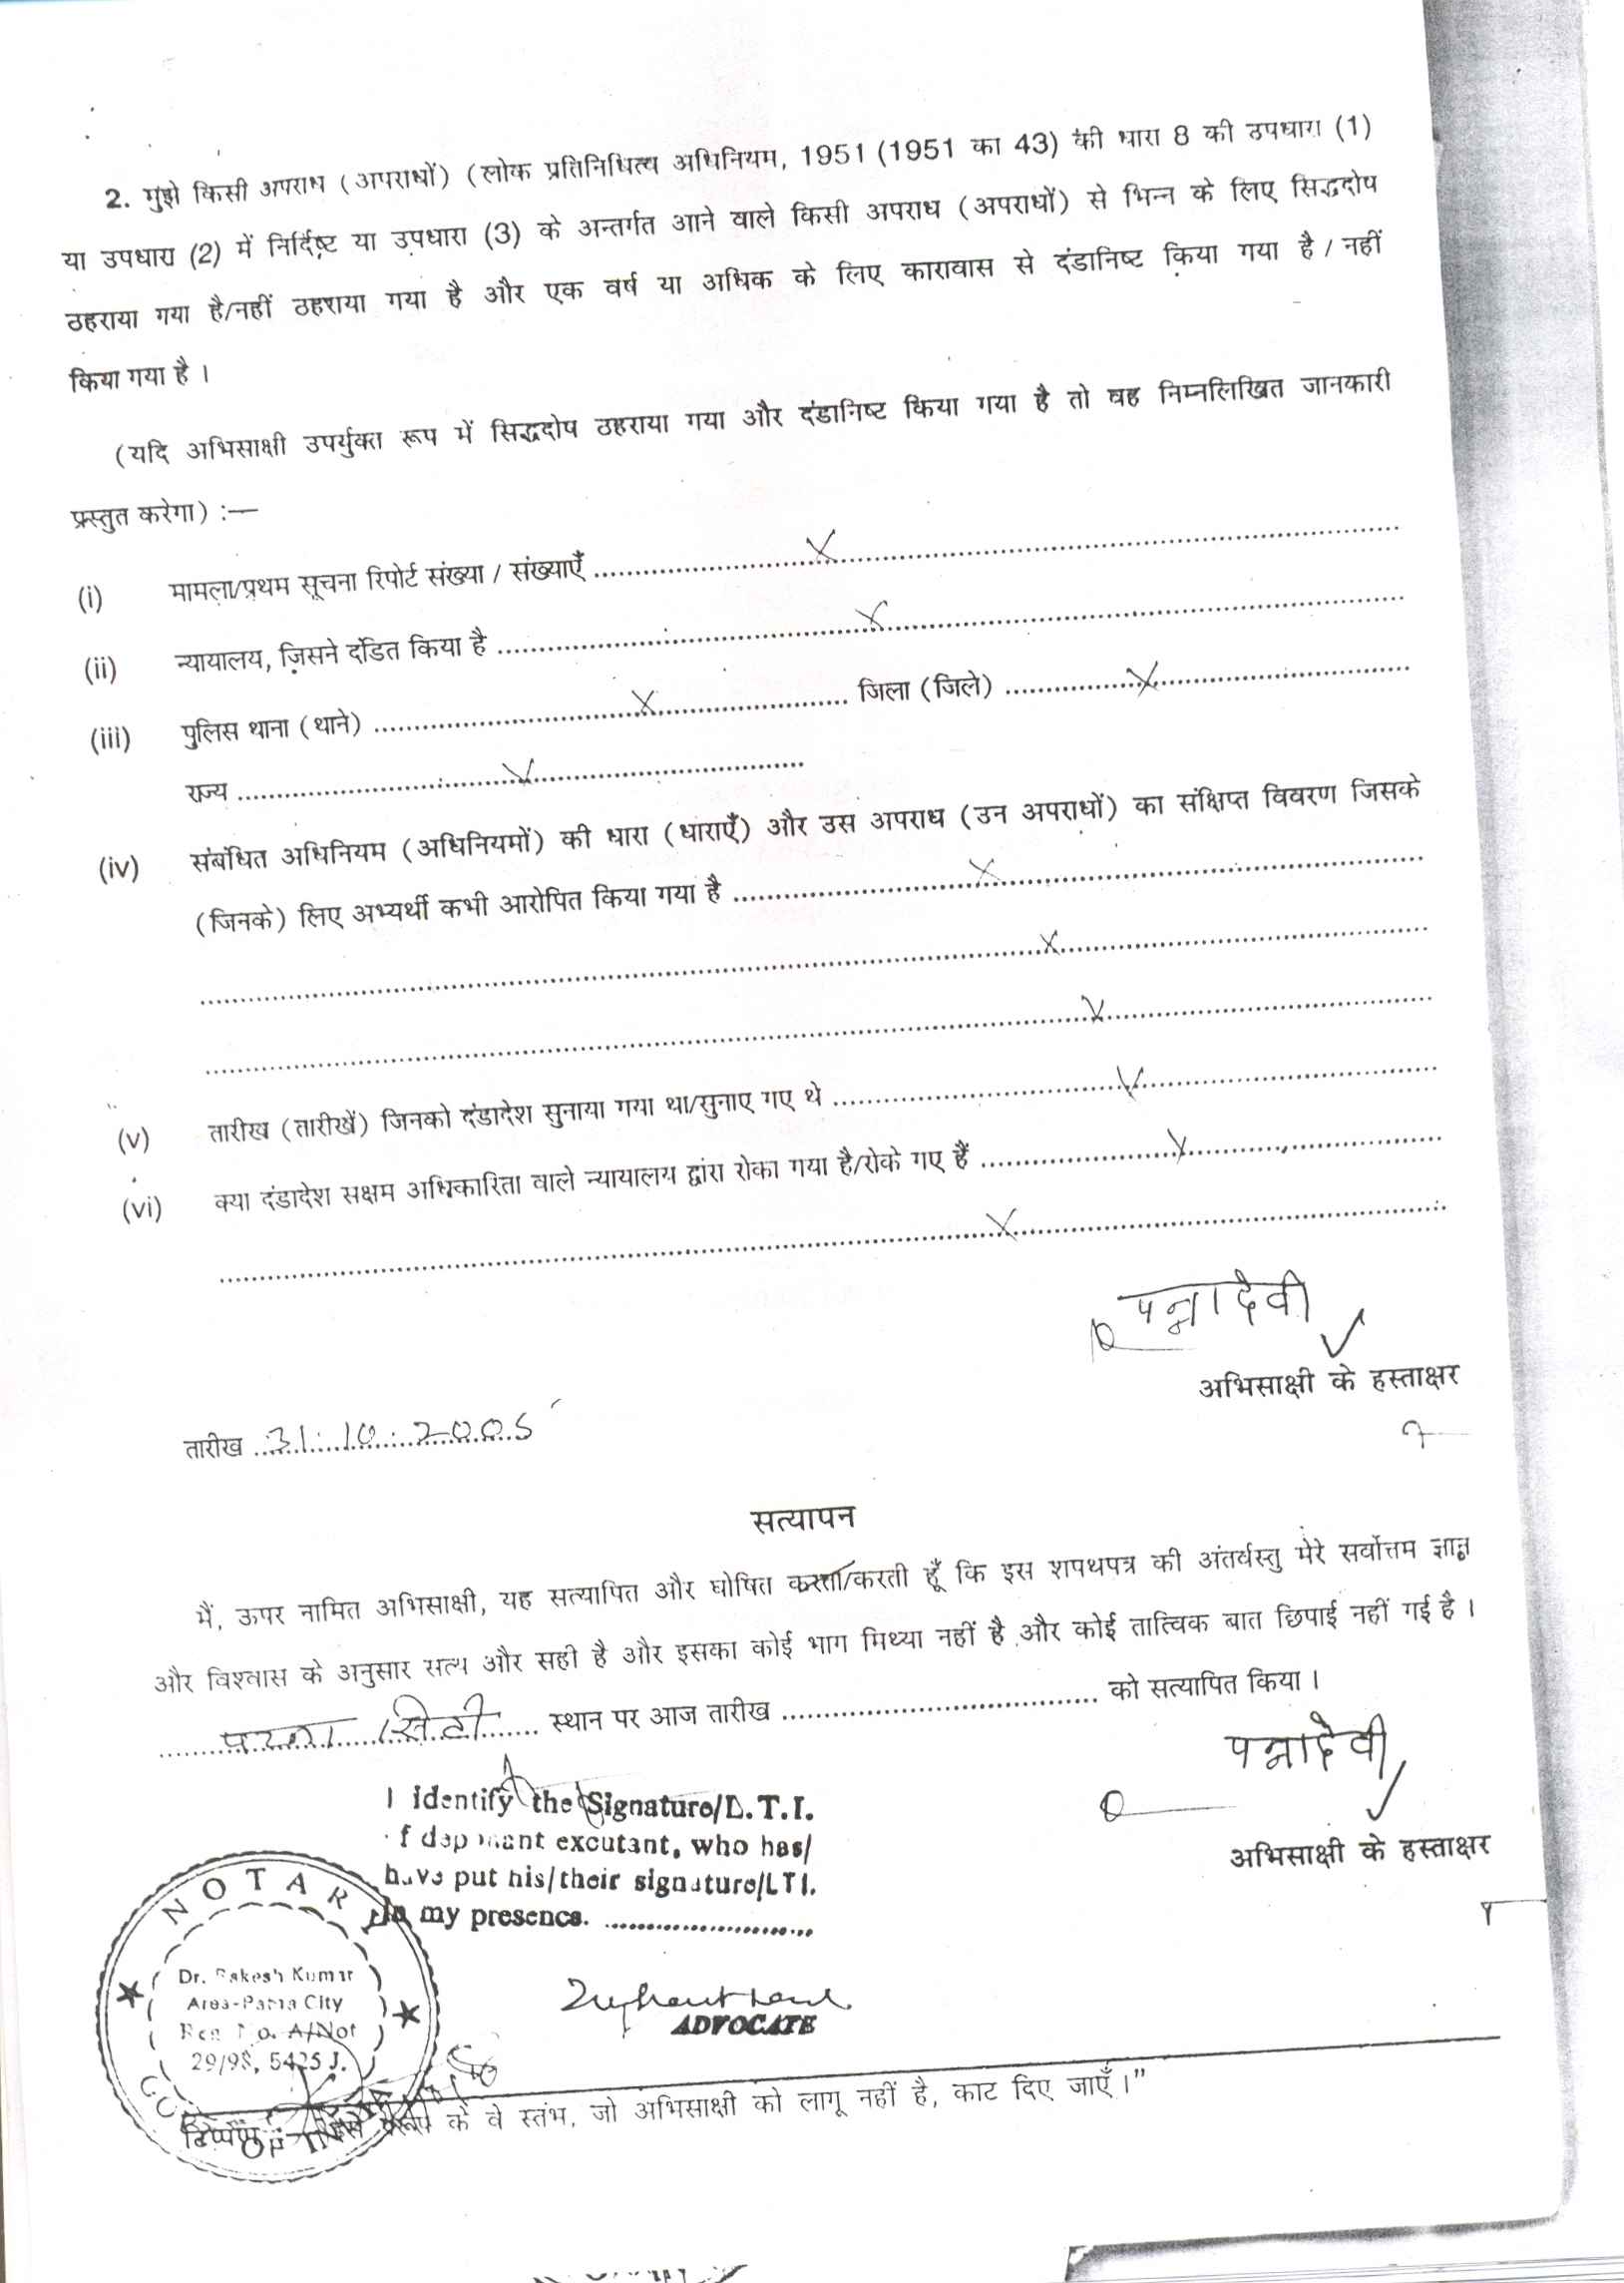 2. मुझे किसी अपराध (अपराधों) (लोक प्रतिनिधित्व अधिनियम, 1951 (1951 का 43) की धारा 8 की उपधारा (1)
या उपधारा (2) में निर्दिष्ट या उपधारा (3) के अन्तर्गत आने वाले किसी अपराध (अपराधों) से भिन्न के लिए सिद्धदोष
ठहराया गया है/नहीं ठहराया गया है और एक वर्ष या अधिक के लिए कारावास से दंडानिष्ट किया गया है / नहीं
किया गया है ।
(यदि अभिसाक्षी उपर्युक्त रूप में सिद्धदोष ठहराया गया और दंडानिष्ट किया गया है तो वह निम्नलिखित जानकारी
प्रस्तुत करेगा) :—
(i) मामला/प्रथम सूचना रिपोर्ट संख्या / संख्याएँ ..........X..........
(ii) न्यायालय, जिसने दंडित किया है ..........X..........
(iii) पुलिस थाना (थाने) ..........X.......... जिला (जिले) ..........X..........
राज्य ..........X..........
(iv) संबंधित अधिनियम (अधिनियमों) की धारा (धाराएँ) और उस अपराध (उन अपराधों) का संक्षिप्त विवरण जिसके
(जिनके) लिए अभ्यर्थी कभी आरोपित किया गया है ..........X..........
..........X..........
..........X..........
(v) तारीख (तारीखें) जिनको दंडादेश सुनाया गया था/सुनाए गए थे ..........X..........
(vi) क्या दंडादेश सक्षम अधिकारिता वाले न्यायालय द्वारा रोका गया है/रोके गए हैं ..........X..........
..........X..........
पन्नादेवी
अभिसाक्षी के हस्ताक्षर
तारीख 31.10.2005
सत्यापन
मैं, ऊपर नामित अभिसाक्षी, यह सत्यापित और घोषित करता/करती हूँ कि इस शपथपत्र की अंतर्वस्तु मेरे सर्वोत्तम ज्ञान
और विश्वास के अनुसार सत्य और सही है और इसका कोई भाग मिथ्या नहीं है और कोई तात्विक बात छिपाई नहीं गई है ।
पटना सिटी स्थान पर आज तारीख .......... को सत्यापित किया ।
पन्नादेवी
अभिसाक्षी के हस्ताक्षर
I identify the Signature/L.T.I.
f deponant excutant, who has/
have put his/their signature/LTI.
In my presence. ..........
ADVOCATE
NOTAR
Dr. Rakesh Kumar
Area-Patna City
Reg. No. A/Not
29/98, 5425 J.
टिप्पण : — इस प्ररूप के वे स्तंभ, जो अभिसाक्षी को लागू नहीं है, काट दिए जाएँ ।”